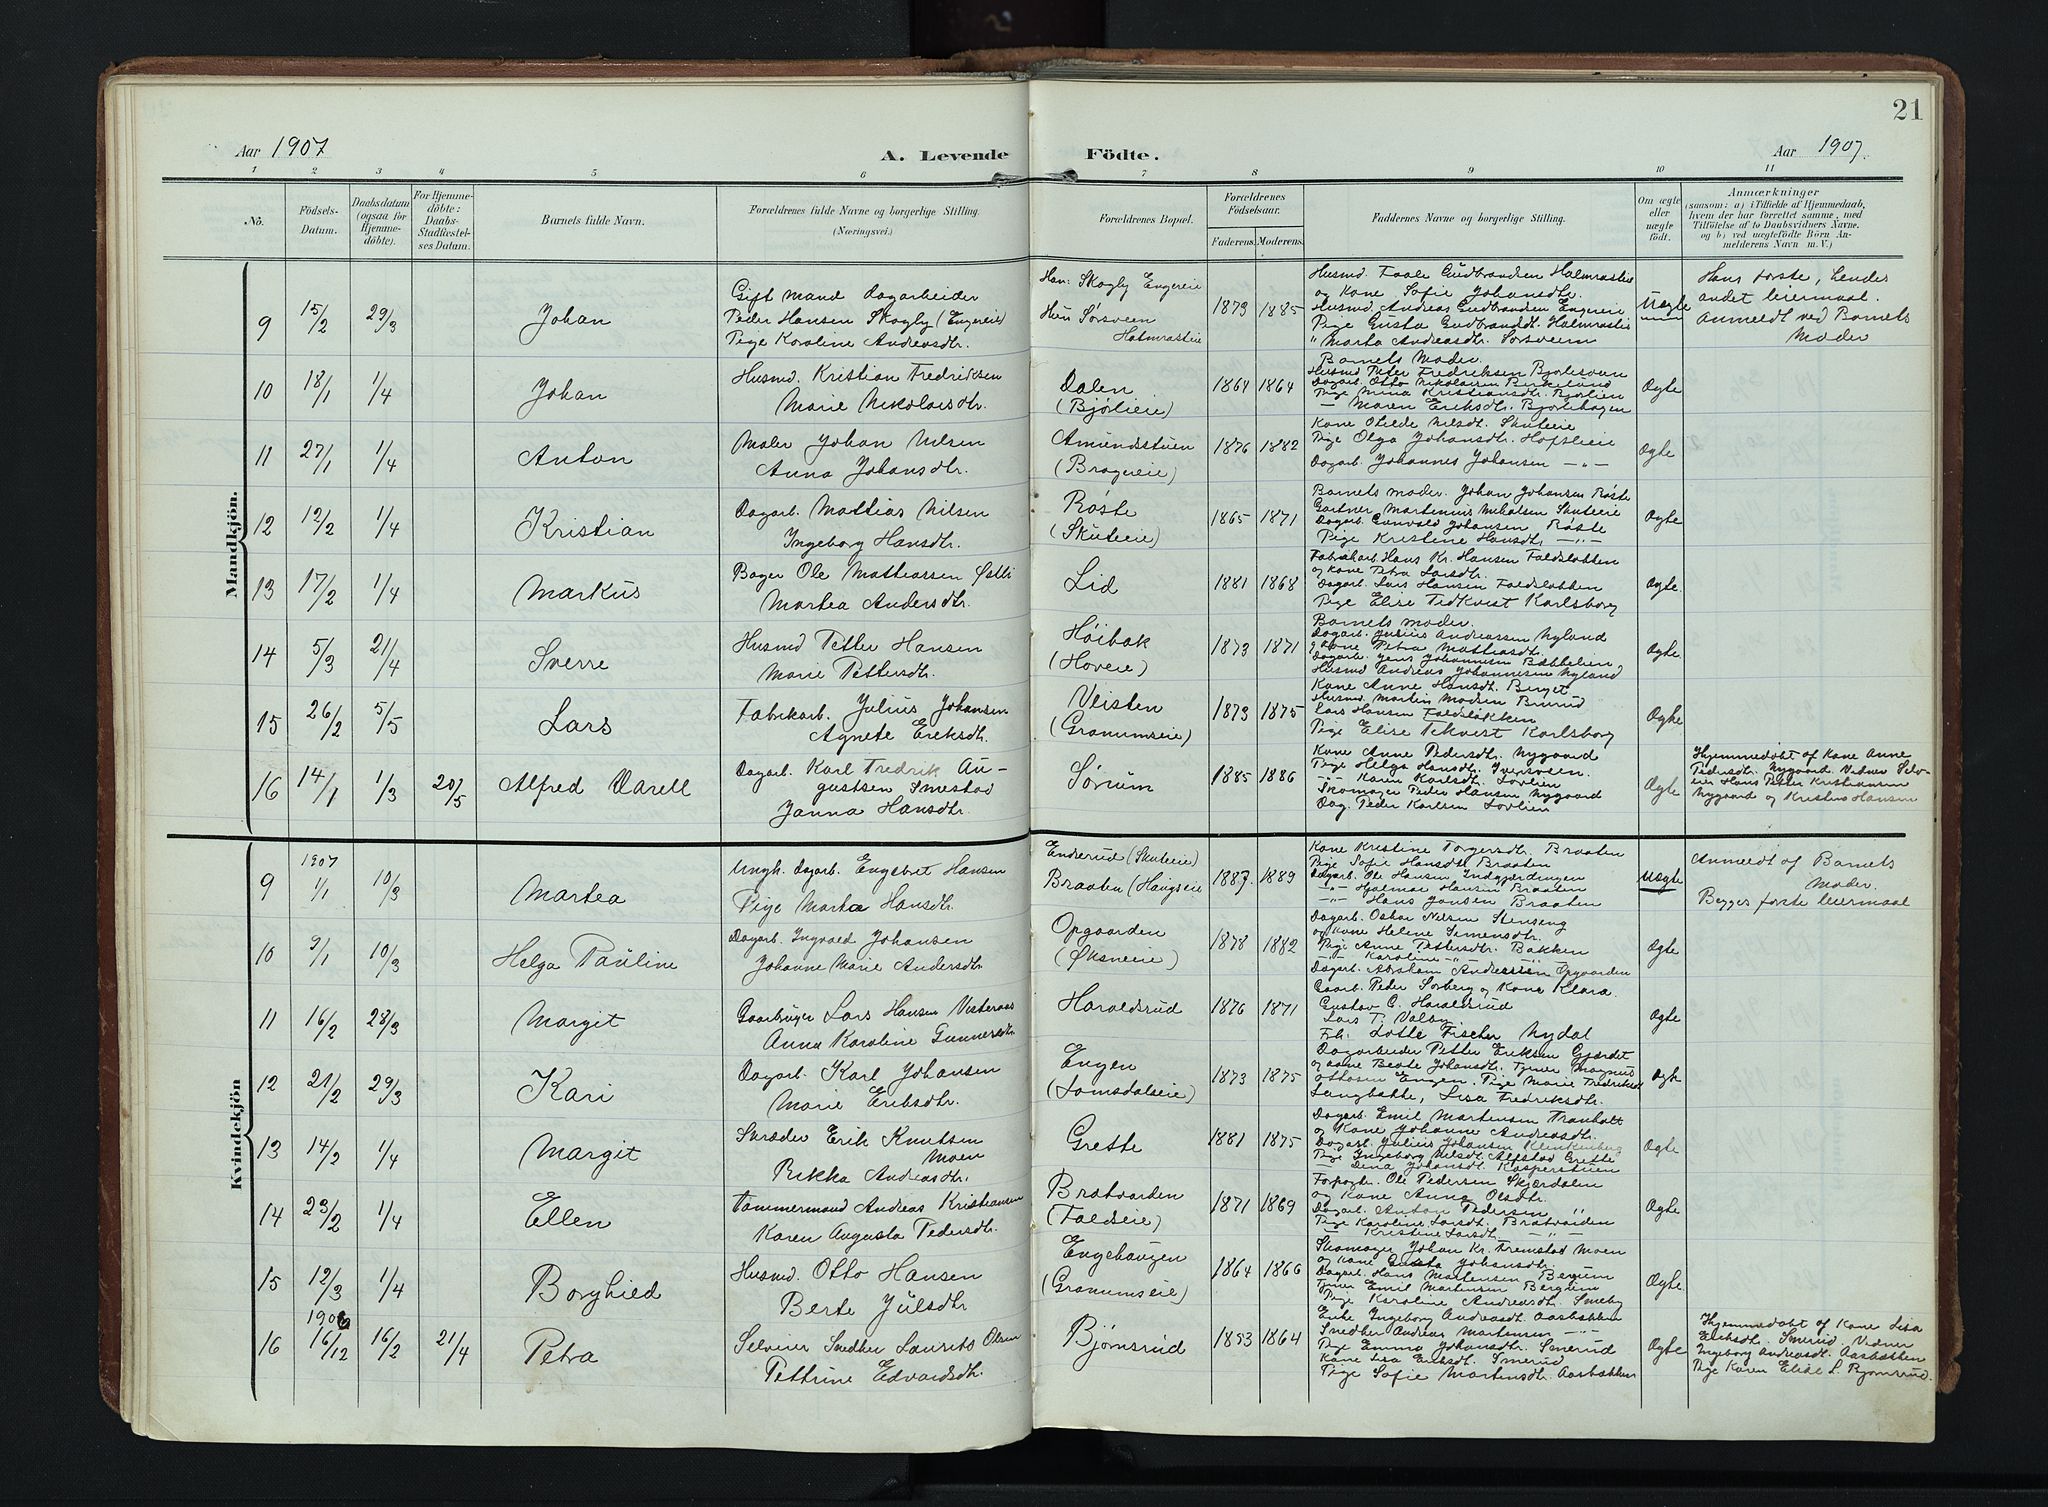 21
Aar 1907
A. Levende Födte.
Aar 1907.
1 2 3 4 5 6 7 8 9 10 11
Nô.
Födsels-Datum.
Daabsdatum (ogsaa for Hjemme-döbte).
For Hjemme-döbte: Daabs-Stadfæstel-ses Datum.
Barnets fulde Navn.
Forældrenes fulde Navne og borgerlige Stilling.
(Næringsvei.)
Forældrenes Bopæl.
Forældrenes Födselsaar.
Faderens. Moderens.
Faddernes Navne og borgerlige Stilling.
Om ægte eller uægte födt.
Anmærkninger
(saasom: a) i Tilfælde af Hjemmedaab, hvem der har forrettet samme, med Tilföielse af to Daabsvidners Navne. og b) ved uægtefödte Börn An-melderens Navn m. V.)
Mandkjön.
9 15/2 29/3 Johan
Gift mand Dagarbeider
Peder Hansen Skogly (Engereie)
Pige Karoline Andreasdtr.
Han: Skogly Engereie
Hun Sørsveen
Halmrasteie
1879 1885
Husmd. Faale Gudbrandsen Halmrasteie
og Kone Sofie Johansdtr.
Husmd Andreas Gudbrandsen Engereie
Pige Gusta Gudbrandsdt. Halmrasteie
" Marta Andreasdtr. Sørsveen
Uægte
Hans første, hendes
andet leiermaal.
Anmeldt ved Barnets
Moder
10 18/1 1/4 Johan
Husmd. Kristian Fredriksen
Marie Nikolaisdtr.
Dalen
(Bjølieie)
1864 1864
Barnets Moder.
Husmd Peter Fredriksen Bjørlesveen
Dagarb. Otto Nikolaisen Birkelund
Pige Mina Kristiansdtr. Bjørlien
— Maren Eriksdtr. Bjørlehagen
Ægte
11 27/1 1/4 Anton
Maler Johan Nilsen
Anna Johansdtr.
Amundsstuen
(Bragereie)
1876 1882
Kone Otilde Nilsdt. Skuteeie
Pige Olga Johansdtr. Hofsleie
Dagarb. Johannes Johansen — " —
Ægte
12 12/2 1/4 Kristian
Dagarb. Mattias Nilsen
Ingeborg Hansdtr.
Røste
(Skuteeie)
1865 1871
Barnets moder. Johan Johansen Røste
Gartner Martenius Mikalsen Skuteeie
Dagarb. Gunvald Johansen Røste
Pige Kristine Hansdtr — " —
Ægte
13 17/2 1/4 Markus
Bager Ole Mattiassen Østli
Martea Andersdtr.
Lid
1881 1868
Fabrikarb. Hans Kr. Hansen Faldsløkken
og kone Petra Larsdtr.
Dagarb. Lars Hansen Faldsløkken
Pige Elise Tedkvist Karlsborg
Ægte.
14 5/3 21/4 Sverre
Husmd Petter Hansen
Marie Pettersdtr.
Høibak
(Hoveie)
1873 1871
Barnets moder.
Dagarb. Julius Andreassen Nyland
og kone Petra Mattiasdtr.
Dagarb. Jens Johannesen Bækkelien
Husmd Andreas Johannesen Nyland
Ægte.
15 26/2 5/5 Lars
Fabrikarb. Julius Johansen
Agnete Eriksdtr.
Veisten
(Granumseie)
1873 1875
Kone Anne Hansdt. Berget
Husmd Martin Madsen Brurud
Lars Hansen Faldsløkken
Pige Elise Tekvest Karlsborg
Ægte
16 14/1 1/3 20/5 Alfred Varell
Dagarb. Karl Fredrik Au-
gustsen Smestad
Janna Hansdtr.
Sørum
1885 1886
Kone Anne Pedersdtr. Nygaard
Pige Helga Hansdtr. Iversveen.
— " — Karen Karlsdt. Lovlien
Skomager Peder Hansen Nygaard
Dag. Peder Karlsen Lovlien
Ægte
Hjemmedøbt af Kone Anne
Pedersdtr. Nygaard. Vidner Selv-
eier Hans Petter Kristiansen
Nygaard og Kristens Hansen
Kvindekjön
9 1907 1/1 10/3 Martea
Ungk. Dagarb. Engebret Hansen
Pige Marta Hansdtr.
Enderud (Skuteeie)
Braaten (Haugseie
1887 1889
Kone Kristine Torgersdtr. Braaten
Pige Sofie Hansdt Braaten
Dagarb. Ole Hansen Indgjærdingen
— " — Hjalmar Hansen Braaten
— " — Hans Jonsen Braaten
Uægte
Anmeldt af Barnets
Moder.
Begges første leiermaal
10 9/1 10/3 Helga Pauline
Dagarb. Ingvald Johansen
Johanne Marie Andersdtr
Opgaarden
(Øksneeie)
1878 1882
Dagarb. Oskar Nilsen Stenseng
og Kone Helene Simensdtr.
Pige Anne Pettersdtr. Bakken
— " — Karoline — " —
Dagarb. Abraham Andreassen Opgaarden
Ægte
11 16/2 28/3 Margit
Gaardbruger Lars Hansen Vesteraas
Anna Karoline Gunnersdtr
Haraldsrud
1876 1871
Gaarb. Peder Sørberg og Kone Klara.
Gustav G. Haraldsrud
Lars T. Valby
Frk. Lotte Fischer Nydal
Ægte
12 21/2 29/3 Kari
Dagarb. Karl Johansen
Marie Eriksdtr.
Engen
(Lomsdalseie)
1873 1875
Dagarbeider Petter Eriksen Gjærdet
og kone Beate Johansdt. Tjener Magnus
Ottosen Engen. Pige Marie Fredriksd
Langbakke, Lisa Fredriksdtr.
Ægte
13 14/2 1/4 Margit
Skræder Erik Knutsen
Moen
Rikka Andreasdtr.
Grette
1881 1875
Dagarb. Emil Martensen Tranholt
og Kone Johanne Andreasdtr.
Dagarb. Julius Johansen Klinkenberg
Pige Ingeborg Nilsdt. Alfstad Grette
— Dina Johansdt. Kasperstuen
Ægte
14 23/2 1/4 Ellen
Tømmermand Andreas Kristiansen
Karen Augusta Pedersdtr.
Bratvarden
(Faldseie)
1871 1869
Forpagter. Ole Pedersen Skjærdalen
og Kone Anna Olsdtr.
Dagarb. Anton Pedersen "
Pige Karoline Larsdt. Bratvarden
— Kristine Larsdt. — " —
Ægte
15 12/3 1/4 Borghied
Husmd. Otto Hansen
Berte Julsdtr
Engehaugen
(Granumseie)
1864 1866
Skomager Johan Kr. Fremstad Moen
og Kone Gusta Johansdtr.
Dagarb. Hans Martensen Bergum
Tjener Emil Martensen Berglien
Pige Karoline Andreasdt. Smeby
Ægte
16 1906 16/12 16/2 21/4 Petra
Selveier Snedker Laurits Olsen
Pettrine Edvardsdtr.
Bjørnsrud
1853 1864
Enke Ingeborg Andreasdt Aasbakken
Snedker Andreas Martensen — " —
Pige Emma Johansdtr. Smerud
Kone Lisa Eriksdt. Smerud
Pige Sofie Martensdtr. Aasbakken
Ægte
Hjemmedøbt af Kone Lisa
Eriksdtr. Smerud. Vidner
Ingeborg Andreasdt. Aasbakken
Pige Karen Elise L. Bjørnsrud.